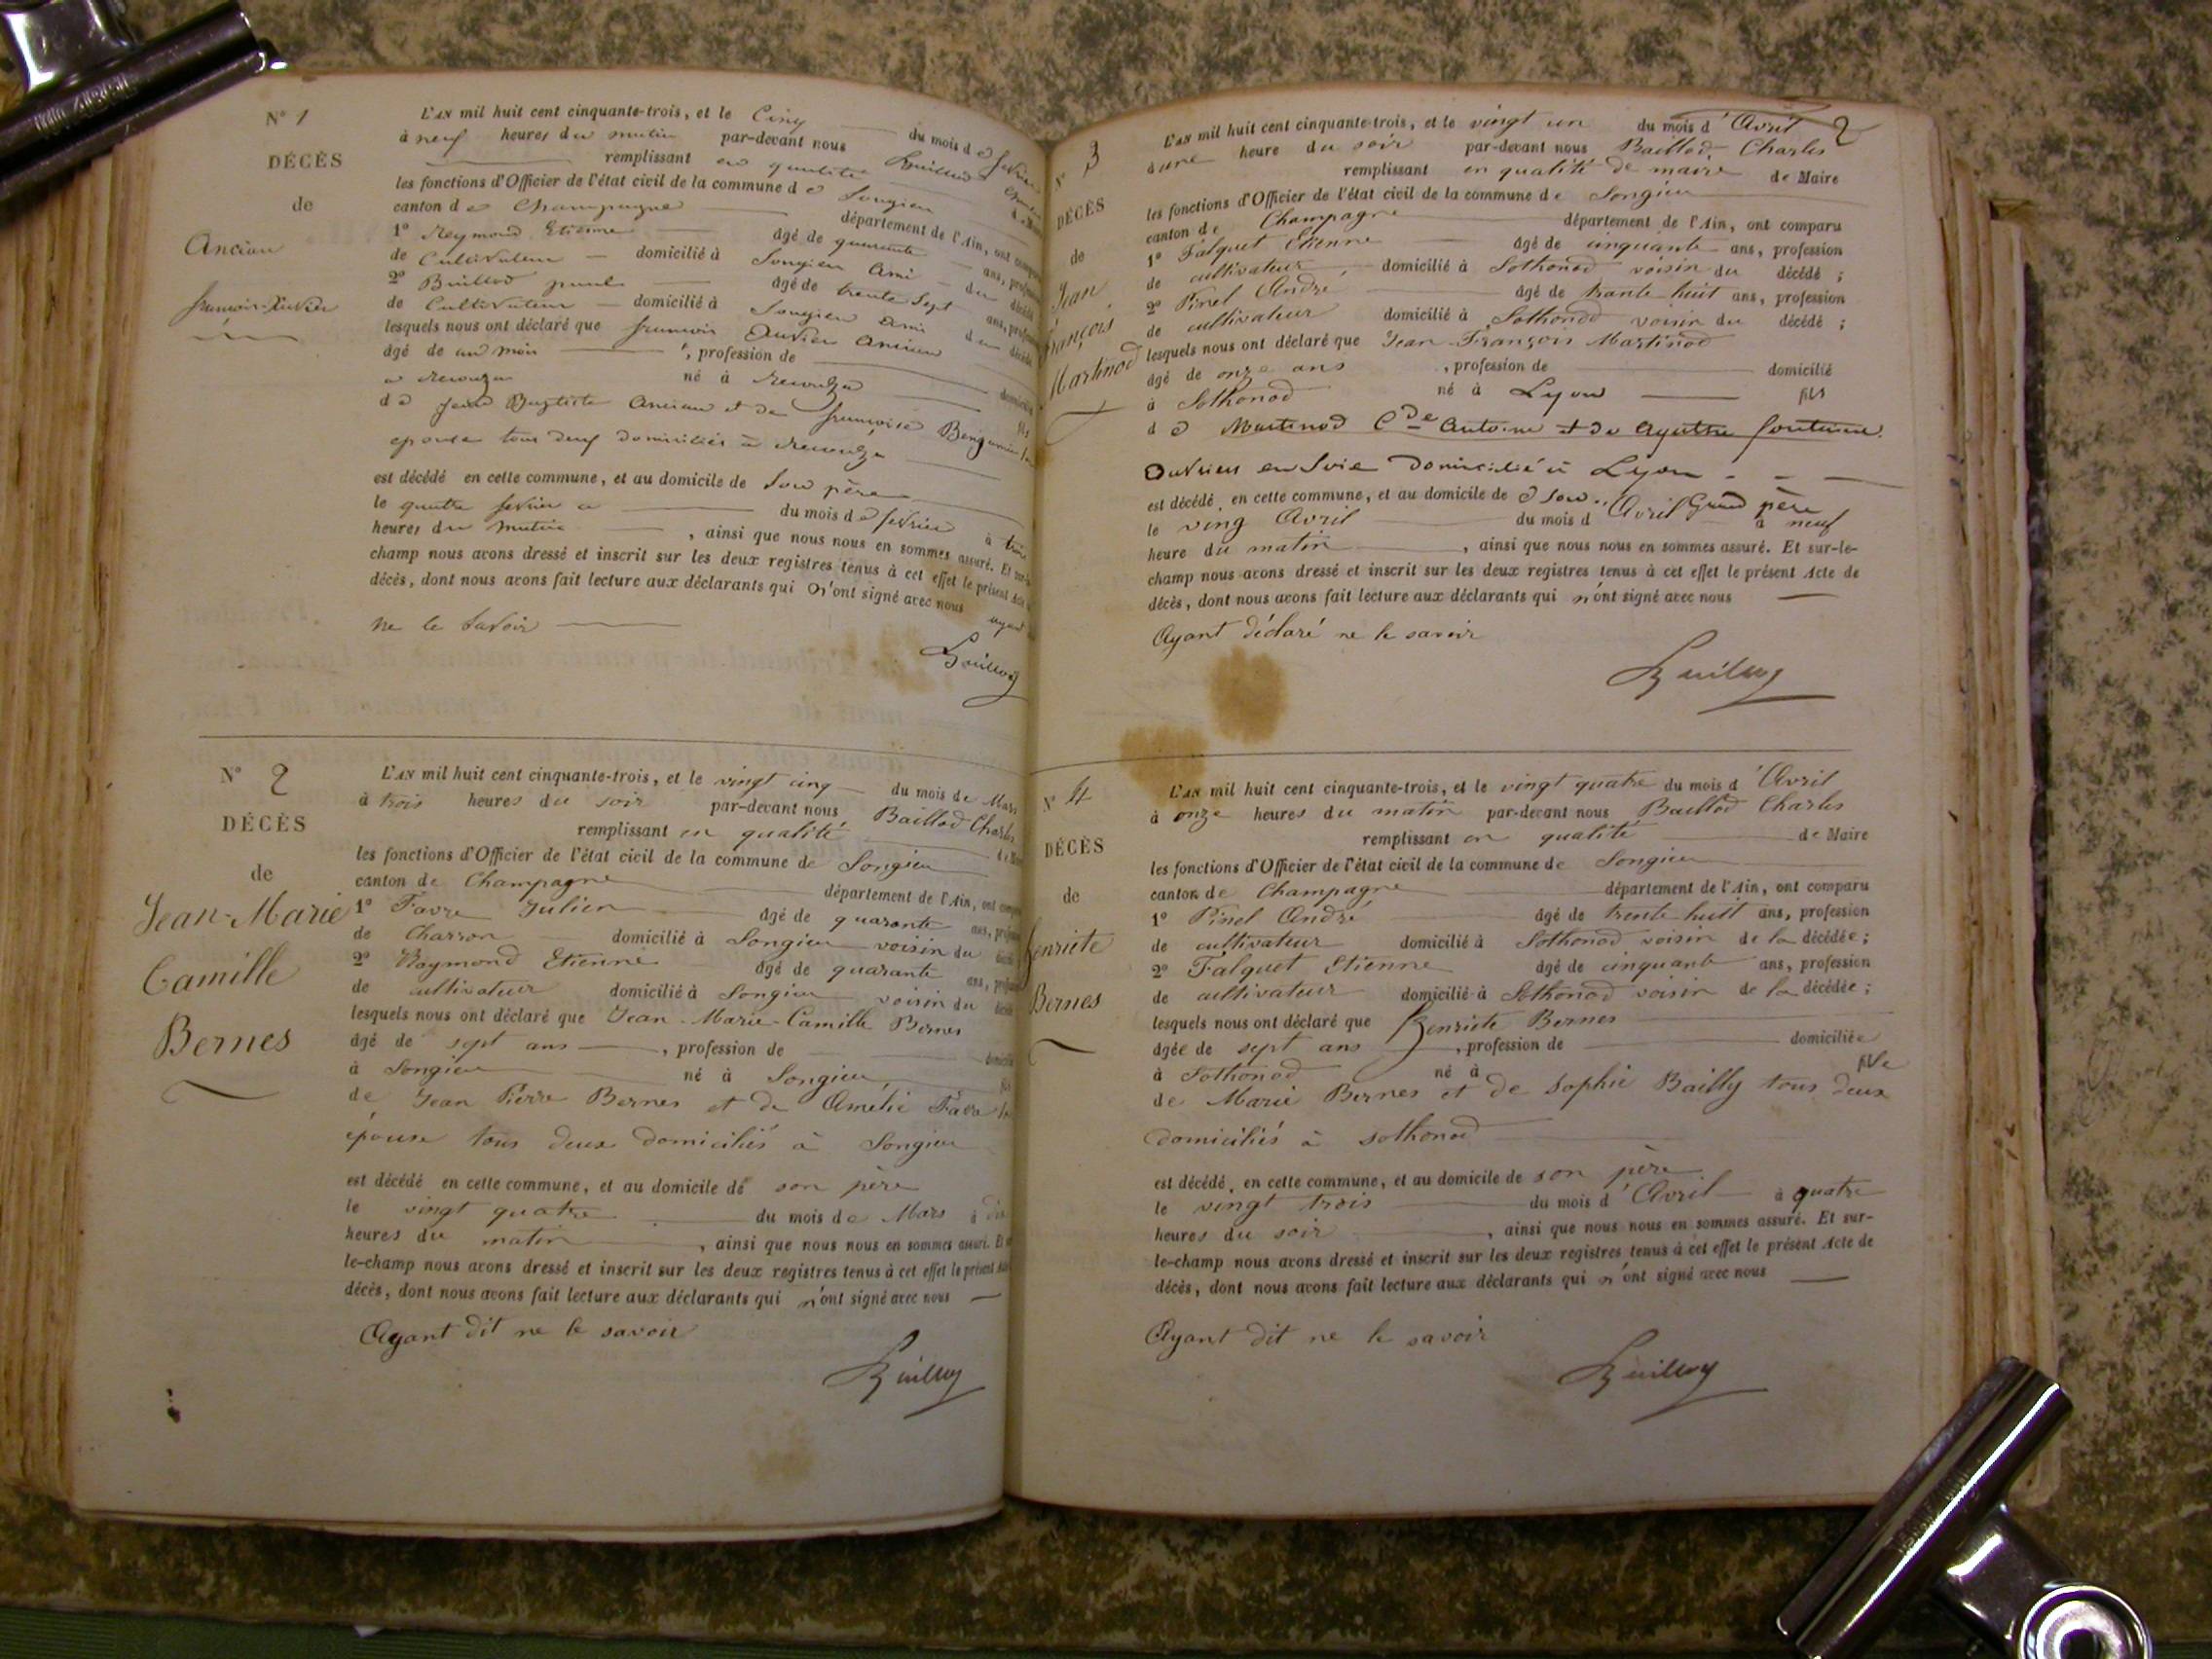 N° 1
DÉCÈS
de
Ancian
françois-Xavier
L'AN mil huit cent cinquante-trois, et le Cinq du mois de fevrier
à neuf heures du matin par-devant nous Baillod
remplissant en qualité
les fonctions d'Officier de l'état civil de la commune de Songieu
canton de Champagne département de l'Ain, ont
1° Reymond Etienne âgé de quarente ans,
de Cultivateur domicilié à Songieu ami du
2° Baillod paul âgé de trente sept ans,
de Cultivateur domicilié à Songieu ami du décédé
lesquels nous ont déclaré que francois Xavier Ancian
âgé de un mois , profession de
né à
de Jean Baptiste Ancian et de françoise Bengamin
epouse tous deux domiciliés à
est décédé en cette commune, et au domicile de son père
le quatre fevrier du mois de fevrier à trois
heures du matin , ainsi que nous nous en sommes assuré. Et
champ nous avons dressé et inscrit sur les deux registres tenus à cet effet le présent Acte
décès, dont nous avons fait lecture aux déclarants qui n'ont signé avec nous
ayant
ne le savoir
Baillod
N° 2
DÉCÈS
de
Jean-Marie
Camille
Bernes
L'AN mil huit cent cinquante-trois, et le vingt cinq du mois de Mars
à trois heures du soir par-devant nous Baillod Charles
remplissant en qualité
les fonctions d'Officier de l'état civil de la commune de Songieu
canton de Champagne département de l'Ain, ont
1° Favre Julien âgé de quarante ans,
de Charron domicilié à Songieu voisin du
2° Raymond Etienne âgé de quarante ans,
de cultivateur domicilié à Songieu voisin du
lesquels nous ont déclaré que Jean-Marie-Camille Bernes
âgé de sept ans , profession de
à Songieu né à Songieu
de Jean Pierre Bernes et de Amélie Favre
épouse tous deux domiciliés à Songieu
est décédé en cette commune, et au domicile de son père
le vingt quatre du mois de Mars à
heures du matin , ainsi que nous nous en sommes assuré. Et
le-champ nous avons dressé et inscrit sur les deux registres tenus à cet effet le présent
décès, dont nous avons fait lecture aux déclarants qui n'ont signé avec nous
Ayant dit ne le savoir
Baillod
2
N° 3
DÉCÈS
de
Jean
François
Martinod
L'AN mil huit cent cinquante-trois, et le vingt un du mois d'Avril
à une heure du soir par-devant nous Baillod Charles
remplissant en qualité de maire de Maire
les fonctions d'Officier de l'état civil de la commune de Songieu
canton de Champagne département de l'Ain, ont comparu
1° Falquet Etienne âgé de cinquante ans, profession
de cultivateur domicilié à Sothonod voisin du décédé ;
2° Pinel André âgé de trante-huit ans, profession
de cultivateur domicilié à Sothonod voisin du décédé ;
lesquels nous ont déclaré que Jean-François Martinod
âgé de onze ans , profession de domicilié
à Sothonod né à Lyon fils
de Martinod Cde Antoine et de Agathe fontaine
Ouvriers en Soie Domicilié à Lyon
est décédé en cette commune, et au domicile de son Grand père
le ving Avril du mois d'Avril à neuf
heure du matin , ainsi que nous nous en sommes assuré. Et sur-le-
champ nous avons dressé et inscrit sur les deux registres tenus à cet effet le présent Acte de
décès, dont nous avons fait lecture aux déclarants qui n'ont signé avec nous
Ayant déclaré ne le savoir
Baillod
N° 4
DÉCÈS
de
Henriete
Bernes
L'AN mil huit cent cinquante-trois, et le vingt quatre du mois d'Avril
à onze heures du matin par-devant nous Baillod Charles
remplissant en qualité de Maire
les fonctions d'Officier de l'état civil de la commune de Songieu
canton de Champagne département de l'Ain, ont comparu
1° Pinel André âgé de trente huit ans, profession
de cultivateur domicilié à Sothonod voisin de la décédée ;
2° Falquet Etienne âgé de cinquante ans, profession
de cultivateur domicilié à Sothonod voisin de la décédée ;
lesquels nous ont déclaré que Henriete Bernes
âgée de sept ans , profession de domiciliée
à Sothonod né à fille
de Marie Bernes et de Sophie Bailly tous deux
domiciliés à Sothonod
est décédé en cette commune, et au domicile de son père
le vingt trois du mois d'Avril à quatre
heures du soir , ainsi que nous nous en sommes assuré. Et sur-
le-champ nous avons dressé et inscrit sur les deux registres tenus à cet effet le présent Acte de
décès, dont nous avons fait lecture aux déclarants qui n'ont signé avec nous
Ayant dit ne le savoir
Baillod